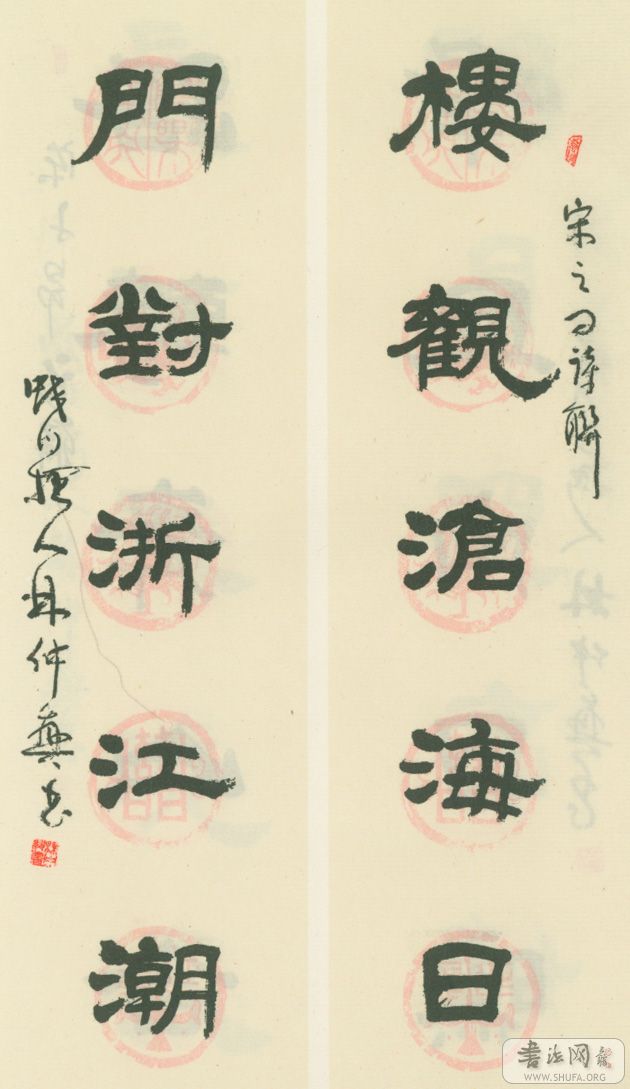 樓觀滄海日
宋之問詩聯
門對浙江潮
人林仲興書
書法网
WWW.SHUFA.ORG